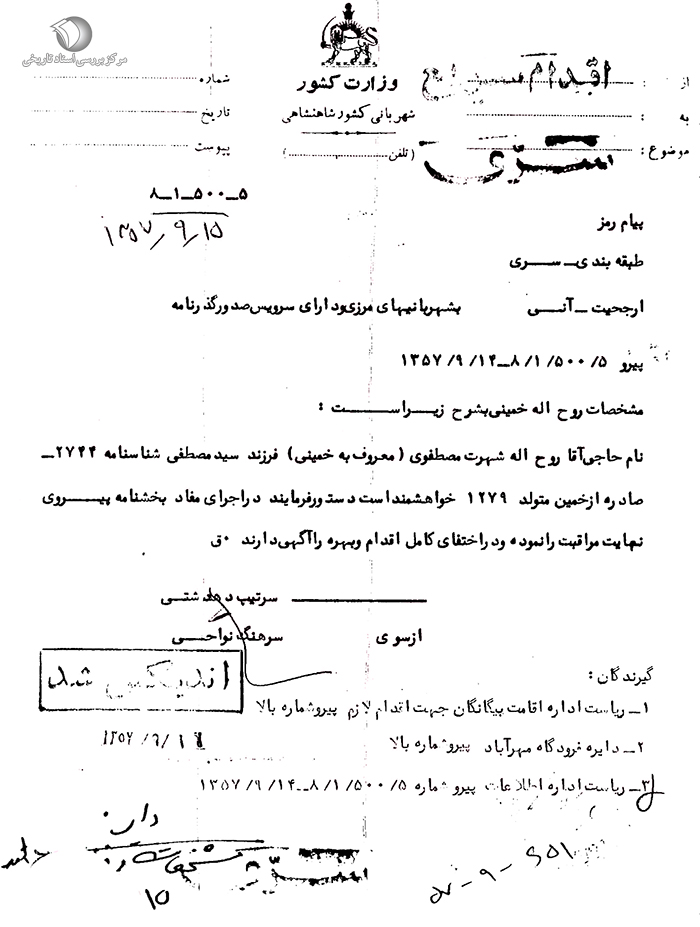 مرکز بررسی اسناد تاریخی
وزارت کشور
شهربانی کشور شاهنشاهی
(تلفن ................)
شماره
تاریخ
پیوست
از :
به :
موضوع :
اقدام سریع
سرّی
۵ــ۵۰۰ــ۱ــ۸
۱۳۵۷/۹/۱۵
پیام رمز
طبقه بندی ــ سری
ارجحیت ــ آنی بشهربانیهای مرزی ودارای سرویس صدورگذرنامه
پیرو ۵/ ۵۰۰/ ۱/ ۸ــ۱۴/ ۹/ ۱۳۵۷
مشخصات روح اله خمینی بشرح زیراست :
نام حاجی آقا روح اله شهرت مصطفوی (معروف به خمینی) فرزند سید مصطفی شناسنامه ۲۷۴۴ــ
صادره ازخمین متولد ۱۲۷۹ خواهشمنداست دستورفرمایند دراجرای مفاد بخشنامه پیروی
نهایت مراقبت رانموده ودراختفای کامل اقدام وبهره راآگهی دارند ۰ق
سرتیپ دهدشتی
ازسوی سرهنگ نواحی
اندیکس شد
گیرندگان :
۱ــ ریاست اداره اقامت بیگانگان جهت اقدام لازم پیروشماره بالا
۲ــ دایره فرودگاه مهرآباد پیروشماره بالا
۳ــ ریاست اداره اطلاعات پیروشماره ۵/ ۵۰۰/ ۱/ ۸ــ۱۴/ ۹/ ۱۳۵۷
سرّی
۱۵